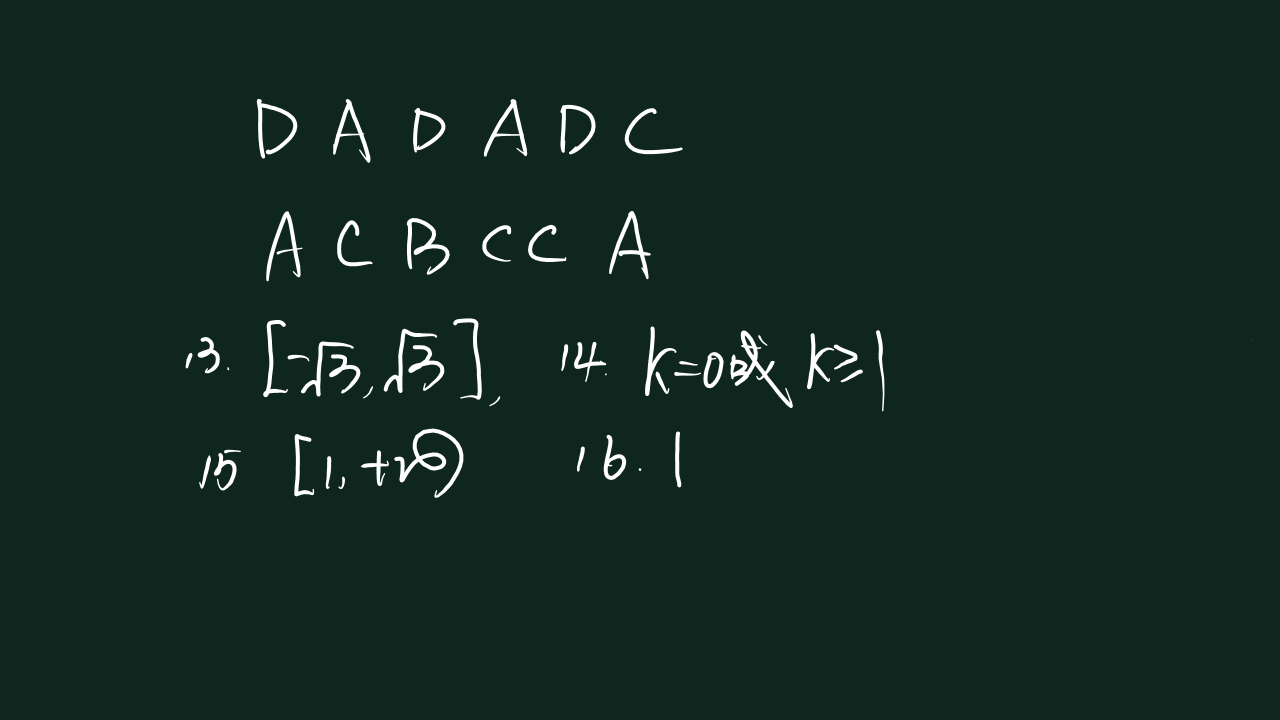 D A D A D C
A C B C C A
13. [-√3, √3], 14. k=0或 k≥1
15 [1, +∞) 16. 1